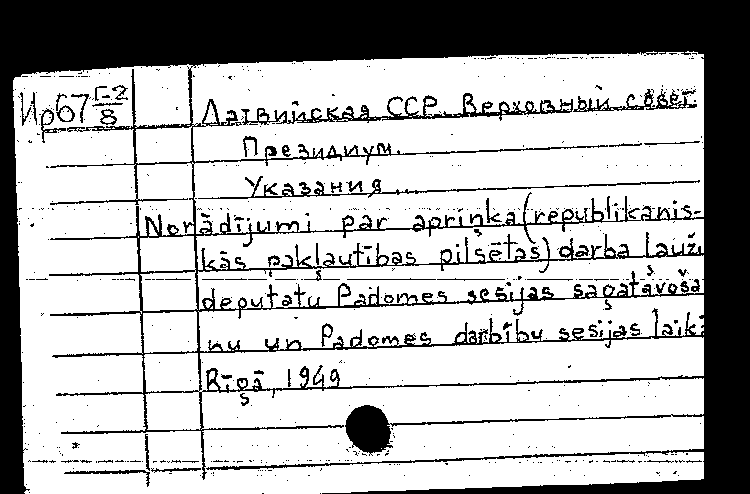 Ир67 Г-2/8
Латвийская ССР. Верховный совет.
Президиум.
Указания...
Norādījumi par apriņka (republikanis-
kās pakļautības pilsētas) darba ļaužu
deputatu Padomes sesijas sagatavoša
nu un Padomes darbību sesijas laikā
Rīgā, 1949